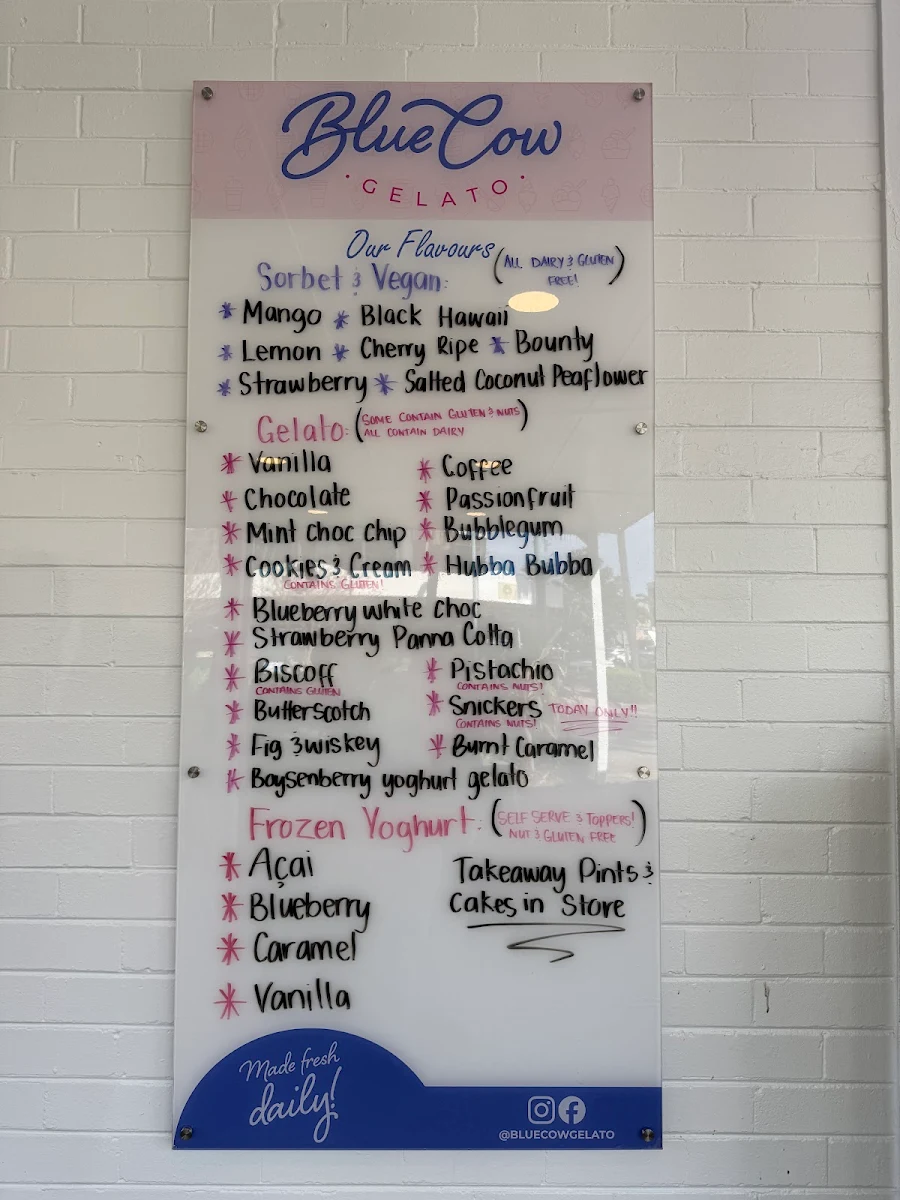 Blue Cow
· GELATO ·
Our Flavours
Sorbet & Vegan: (ALL DAIRY & GLUTEN
FREE!)
* Mango * Black Hawaii
* Lemon * Cherry Ripe * Bounty
* Strawberry * Salted Coconut Peaflower
Gelato: (SOME CONTAIN GLUTEN & NUTS
ALL CONTAIN DAIRY)
* Vanilla * Coffee
* Chocolate * Passionfruit
* Mint choc chip * Bubblegum
* Cookies & Cream * Hubba Bubba
CONTAINS GLUTEN!
* Blueberry white choc
* Strawberry Panna Cotta
* Biscoff * Pistachio
CONTAINS GLUTEN CONTAINS NUTS!
* Butterscotch * Snickers TODAY ONLY!!
CONTAINS NUTS!
* Fig & wiskey * Burnt Caramel
* Boysenberry yoghurt gelato
Frozen Yoghurt: (SELF SERVE & TOPPERS!
NUT & GLUTEN FREE)
* Açai
* Blueberry
* Caramel
* Vanilla
Takeaway Pints &
Cakes in Store
Made fresh
daily!
@BLUECOWGELATO